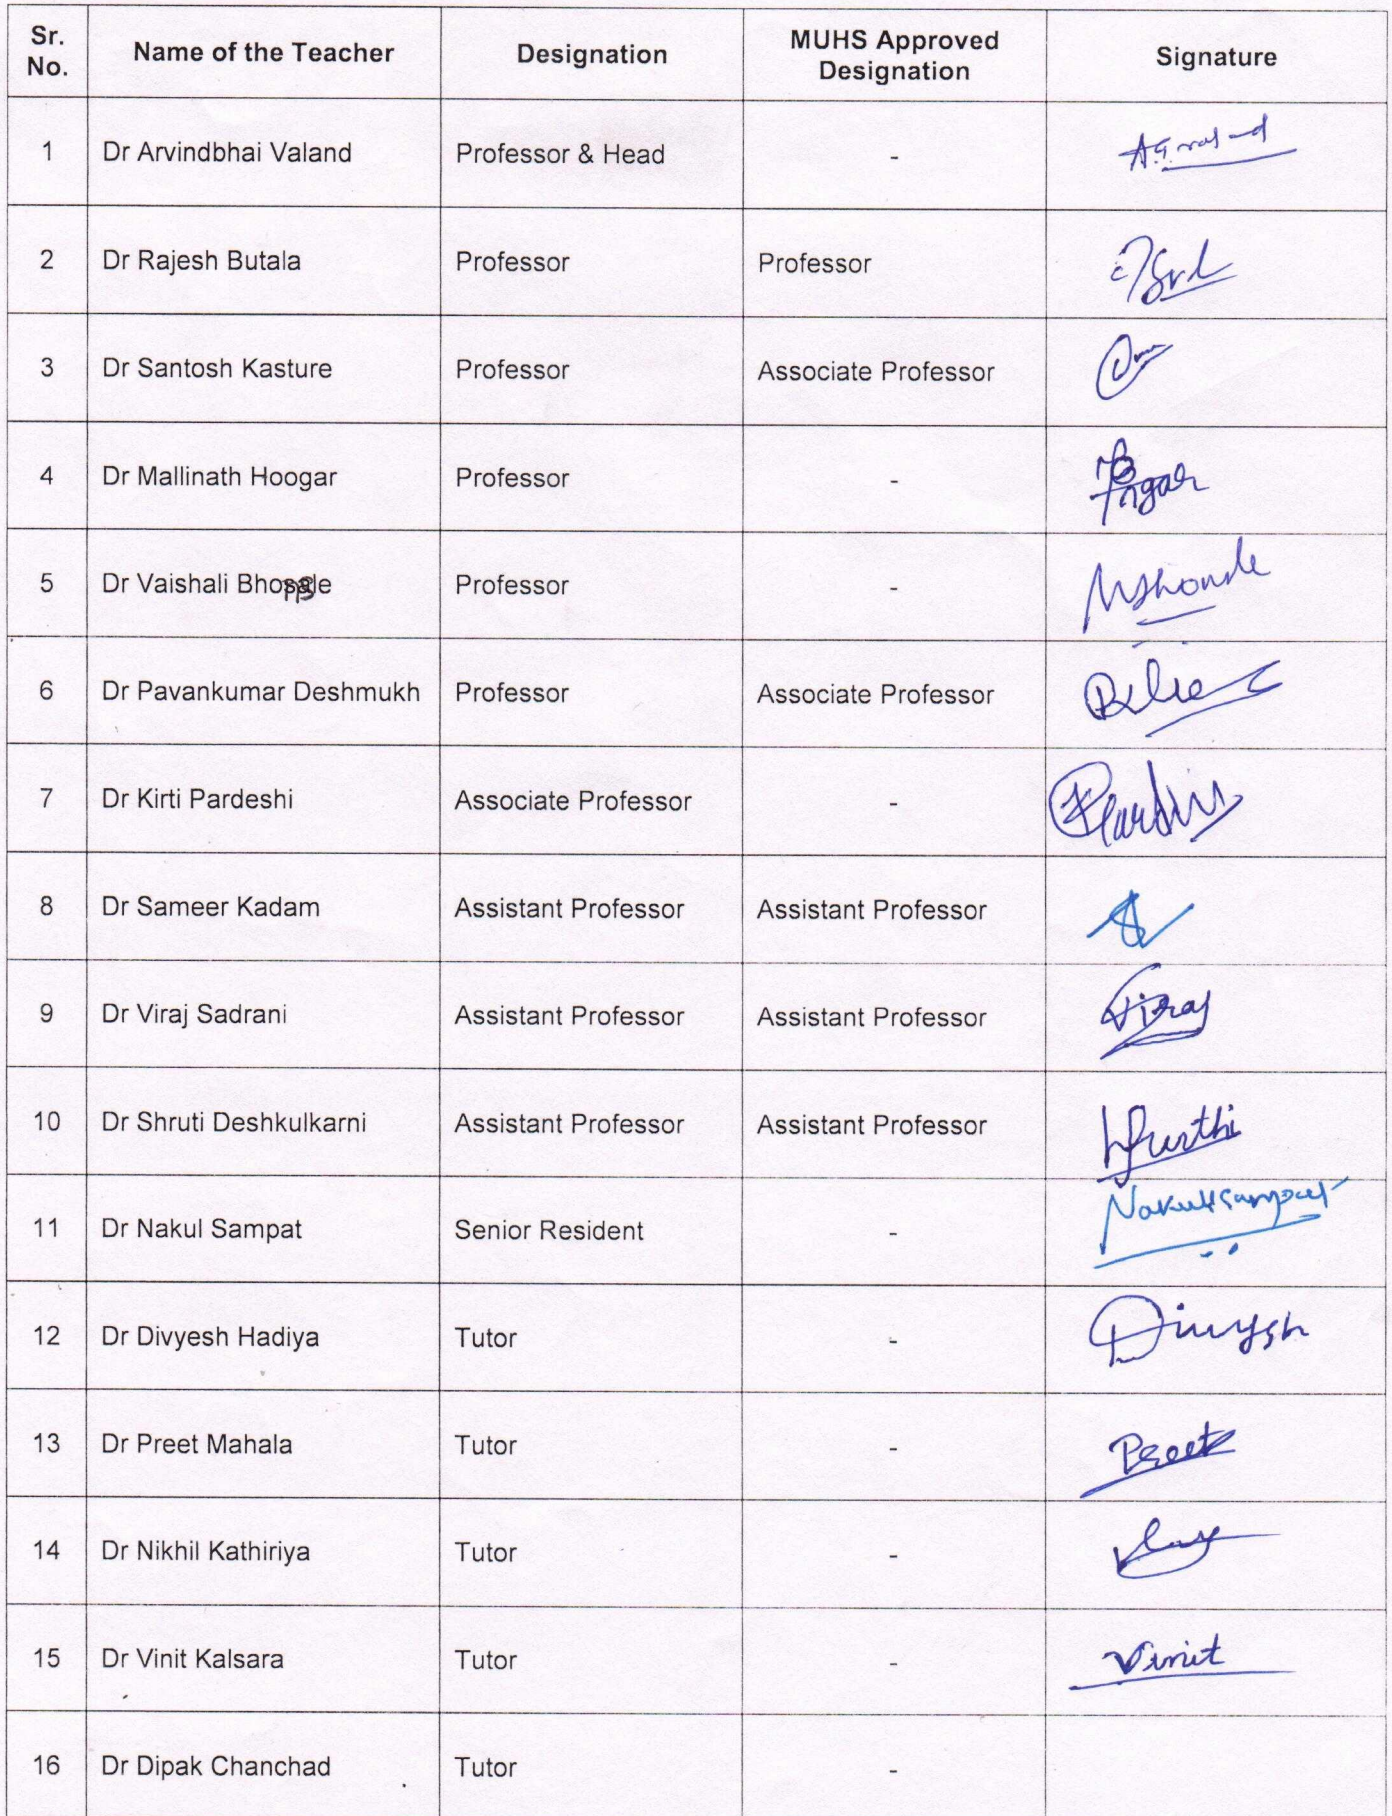 Sr. No. Name of the Teacher Designation MUHS Approved Designation Signature
1 Dr Arvindbhai Valand Professor & Head -
2 Dr Rajesh Butala Professor Professor
3 Dr Santosh Kasture Professor Associate Professor
4 Dr Mallinath Hoogar Professor -
5 Dr Vaishali Professor -
6 Dr Pavankumar Deshmukh Professor Associate Professor
7 Dr Kirti Pardeshi Associate Professor -
8 Dr Sameer Kadam Assistant Professor Assistant Professor
9 Dr Viraj Sadrani Assistant Professor Assistant Professor Viraj
10 Dr Shruti Deshkulkarni Assistant Professor Assistant Professor
11 Dr Nakul Sampat Senior Resident - Nakul Sampat
12 Dr Divyesh Hadiya Tutor - Divyesh
13 Dr Preet Mahala Tutor - Preet
14 Dr Nikhil Kathiriya Tutor -
15 Dr Vinit Kalsara Tutor - Vinit
16 Dr Dipak Chanchad Tutor -